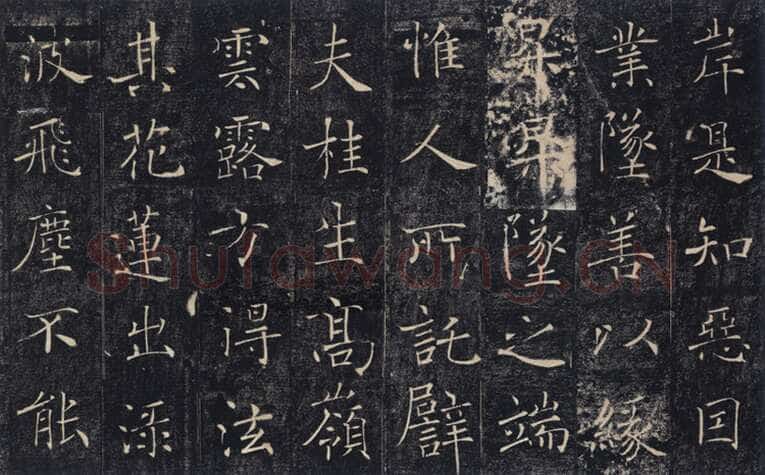 岸是知惡因
業墜善以緣
昇昇墜之端
惟人所託譬
夫桂生髙嶺
雲露方得泫
其花蓮出淥
波飛塵不能
Shufawang.CN